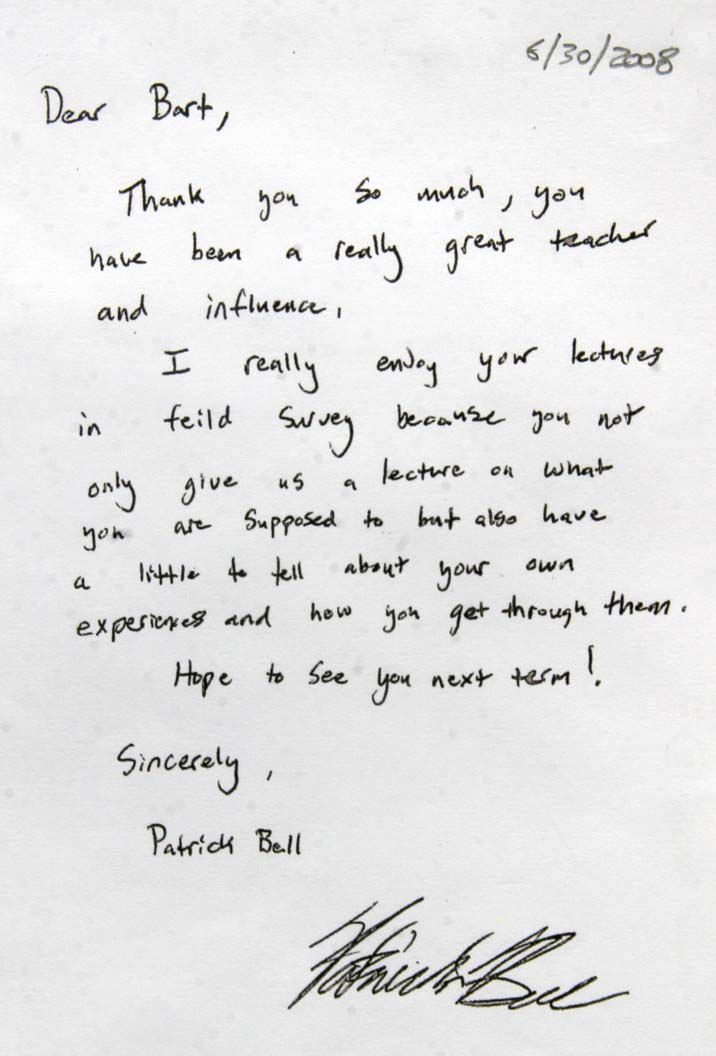 6/30/2008
Dear Bart,
Thank you so much, you
have been a really great teacher
and influence.
I really enjoy your lectures
in feild survey because you not
only give us a lecture on what
you are supposed to but also have
a little to tell about your own
experiences and how you get through them.
Hope to see you next term!
Sincerely,
Patrick Bell
Patrick Bell